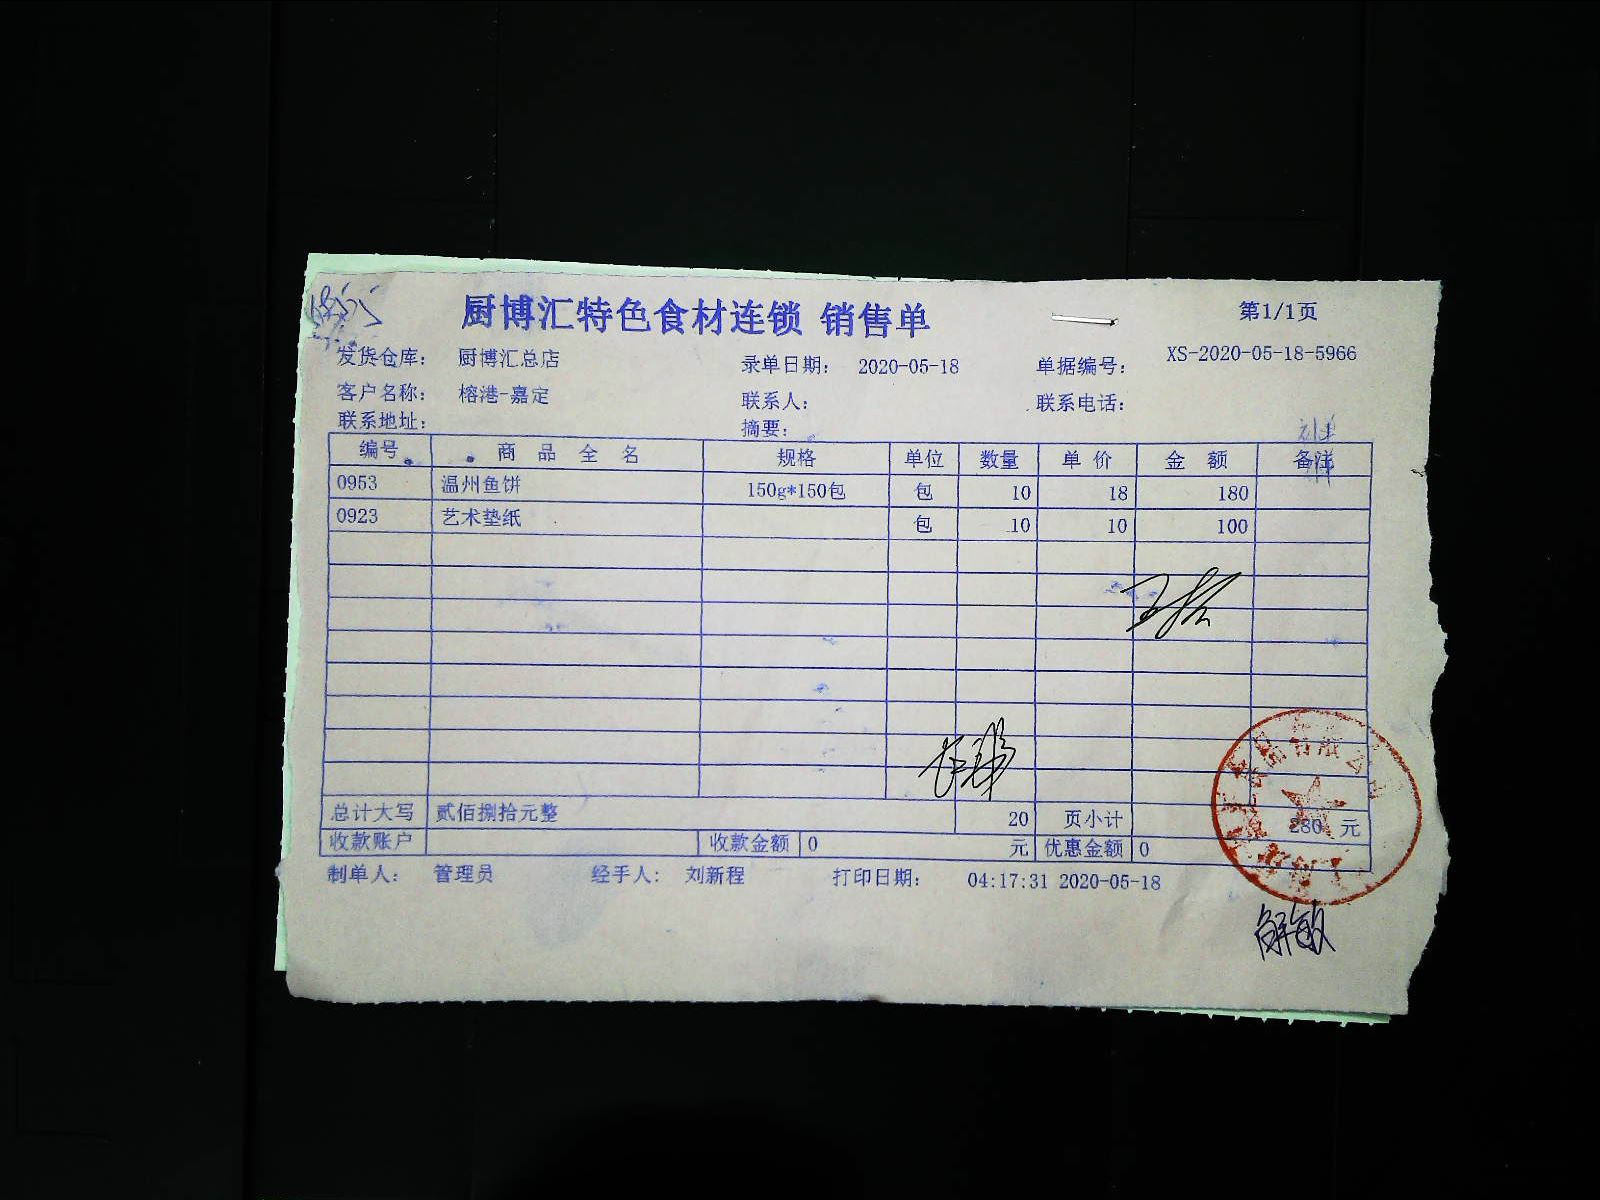 厨博汇特色食材连锁 销售单 第1/1页
发货仓库： 厨博汇总店 录单日期： 2020-05-18 单据编号： XS-2020-05-18-5966
客户名称： 榕港-嘉定 联系人： 联系电话：
联系地址： 摘要：
编号 商品全名 规格 单位 数量 单价 金额 备注
0953 温州鱼饼 150g*150包 包 10 18 180
0923 艺术垫纸 包 10 10 100
总计大写 贰佰捌拾元整 20 页小计 280 元
收款账户 收款金额 0 元 优惠金额 0
制单人： 管理员 经手人： 刘新程 打印日期： 04:17:31 2020-05-18
解敏